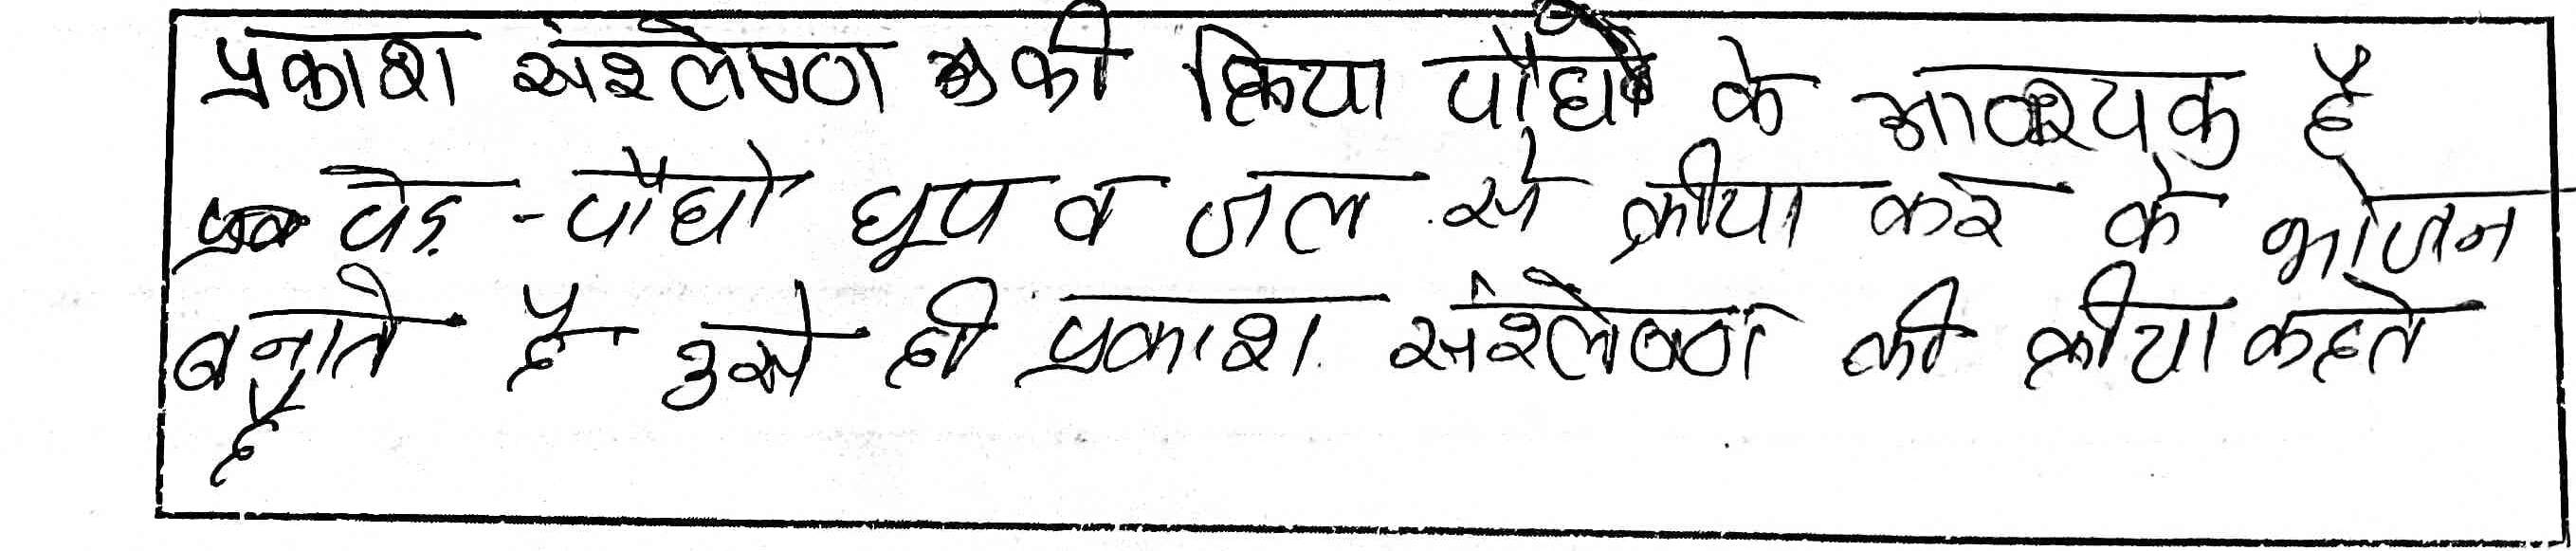 प्रकाश संश्लेषण की क्रिया पौधो के आवश्यक है
पेड़ - पौधो धूप व जल से क्रीया कर के भोजन
बनाते है उसे ही प्रकाश संश्लेषण की क्रीया कहते
है